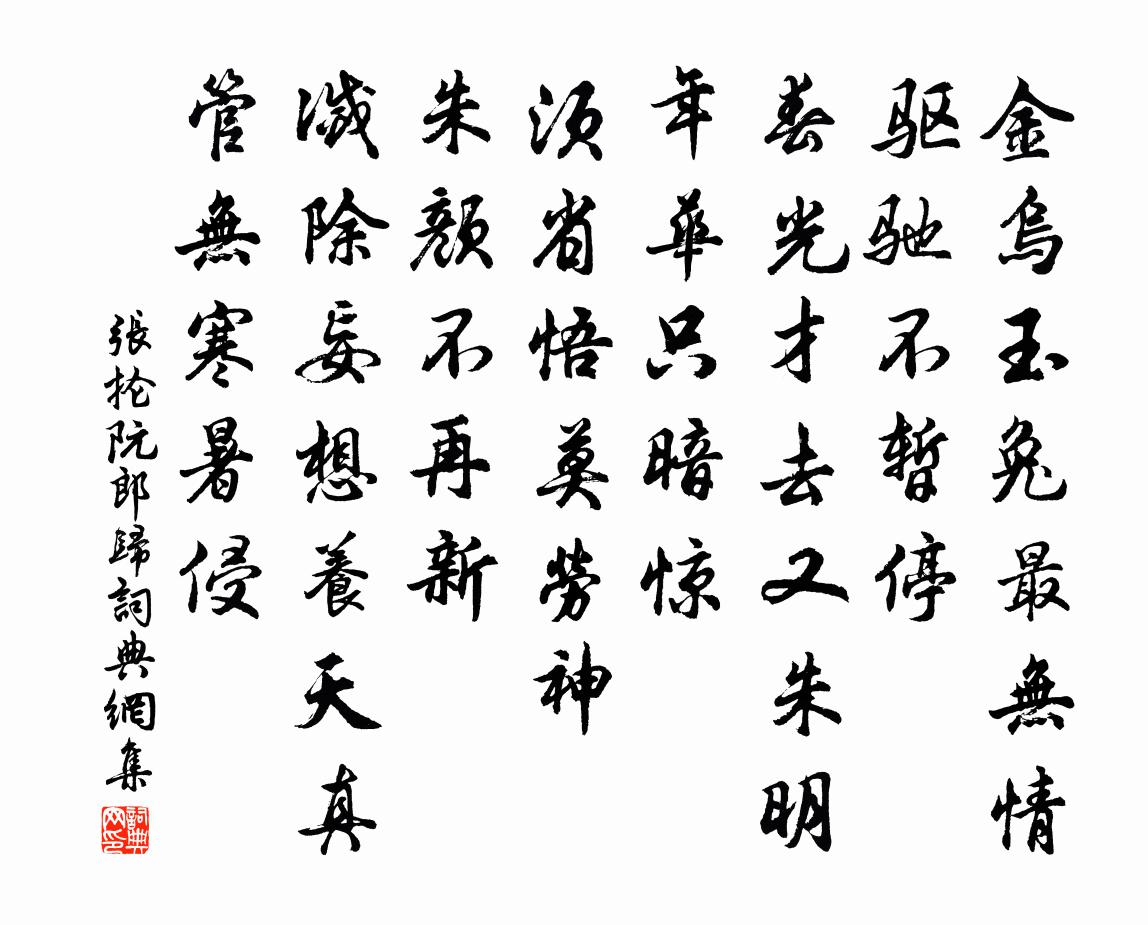 金烏玉兔最無情
驱驰不暫停
春光才去又朱明
年華只暗惊
須省悟莫勞神
朱颜不再新
滅除妄想養天真
管無寒暑侵
張抡阮郎歸詞典網集
詞典网印